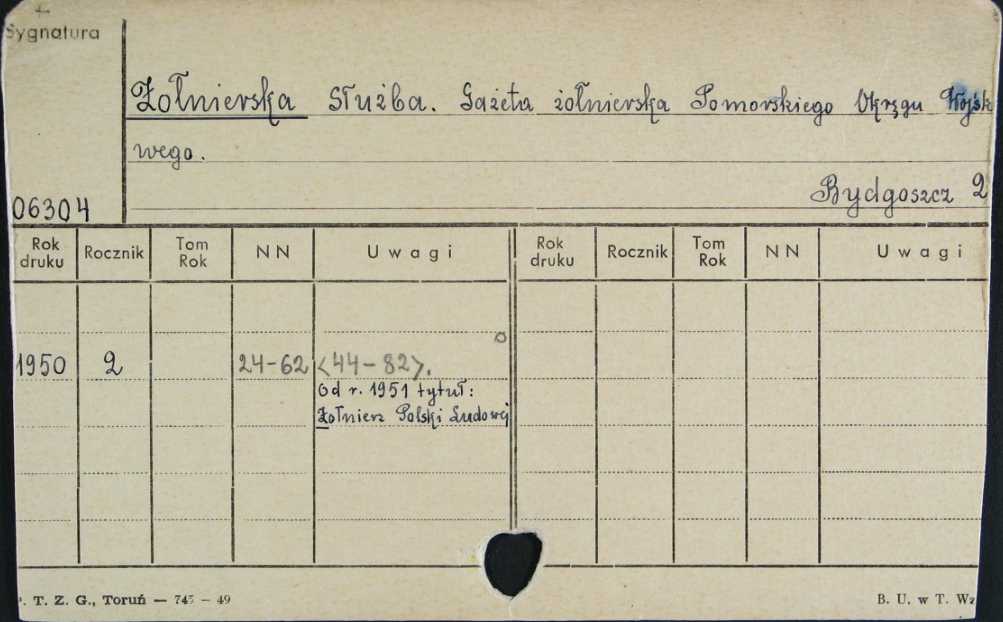 Sygnatura
Żołnierska Służba. Gazeta żołnierska Pomorskiego Okręgu Wojsk
wego.
Bydgoszcz 2
06304
Rok druku Rocznik Tom Rok NN Uwagi Rok druku Rocznik Tom Rok NN Uwagi
1950 2 24-62 <44-82>.
Od r. 1951 tytuł:
Żołnierz Polski Ludowej
. T. Z. G., Toruń — 745 — 49
B. U. w T. Wz